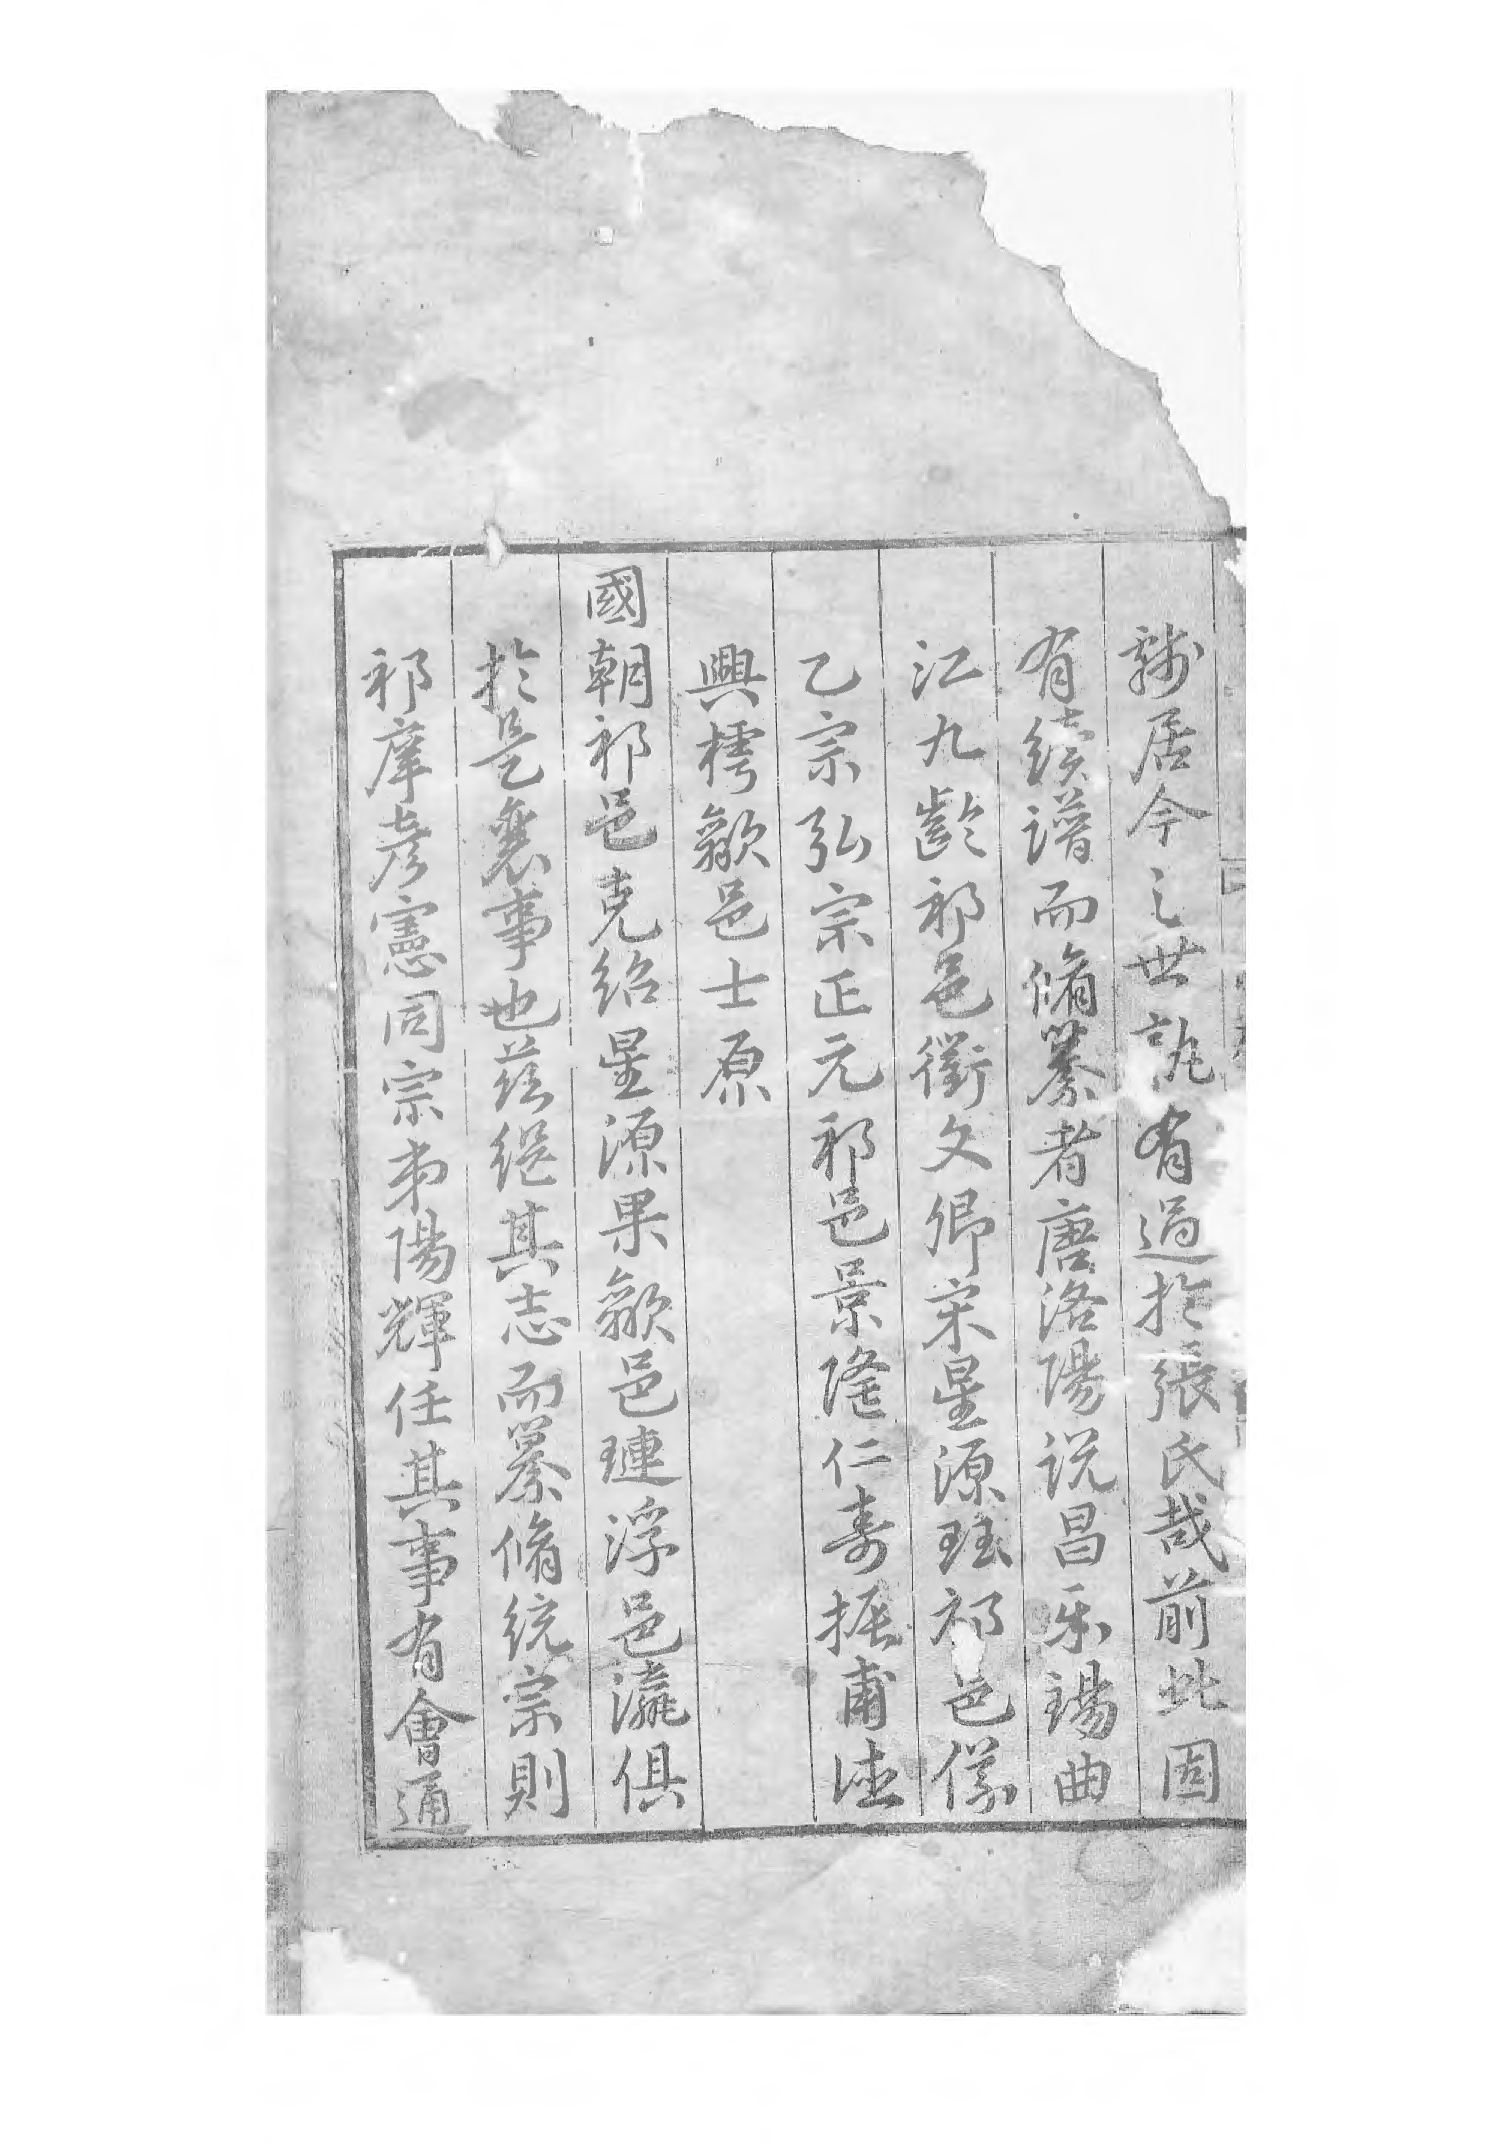 居今之世孰有過於張氏哉前此固
有續譜而脩纂者唐洛陽説昌樂瑒曲
江九齡祁邑衢文卿宋星源珏祁邑
乙宗弘宗正元祁邑景隆仁壽振甫
興樗歙邑士原
國朝祁邑克紹星源果歙邑璉浮邑瀛俱
於是襄事也茲繼其志而纂脩統宗則
祁庠彥憲同宗弟陽輝任其事有會通